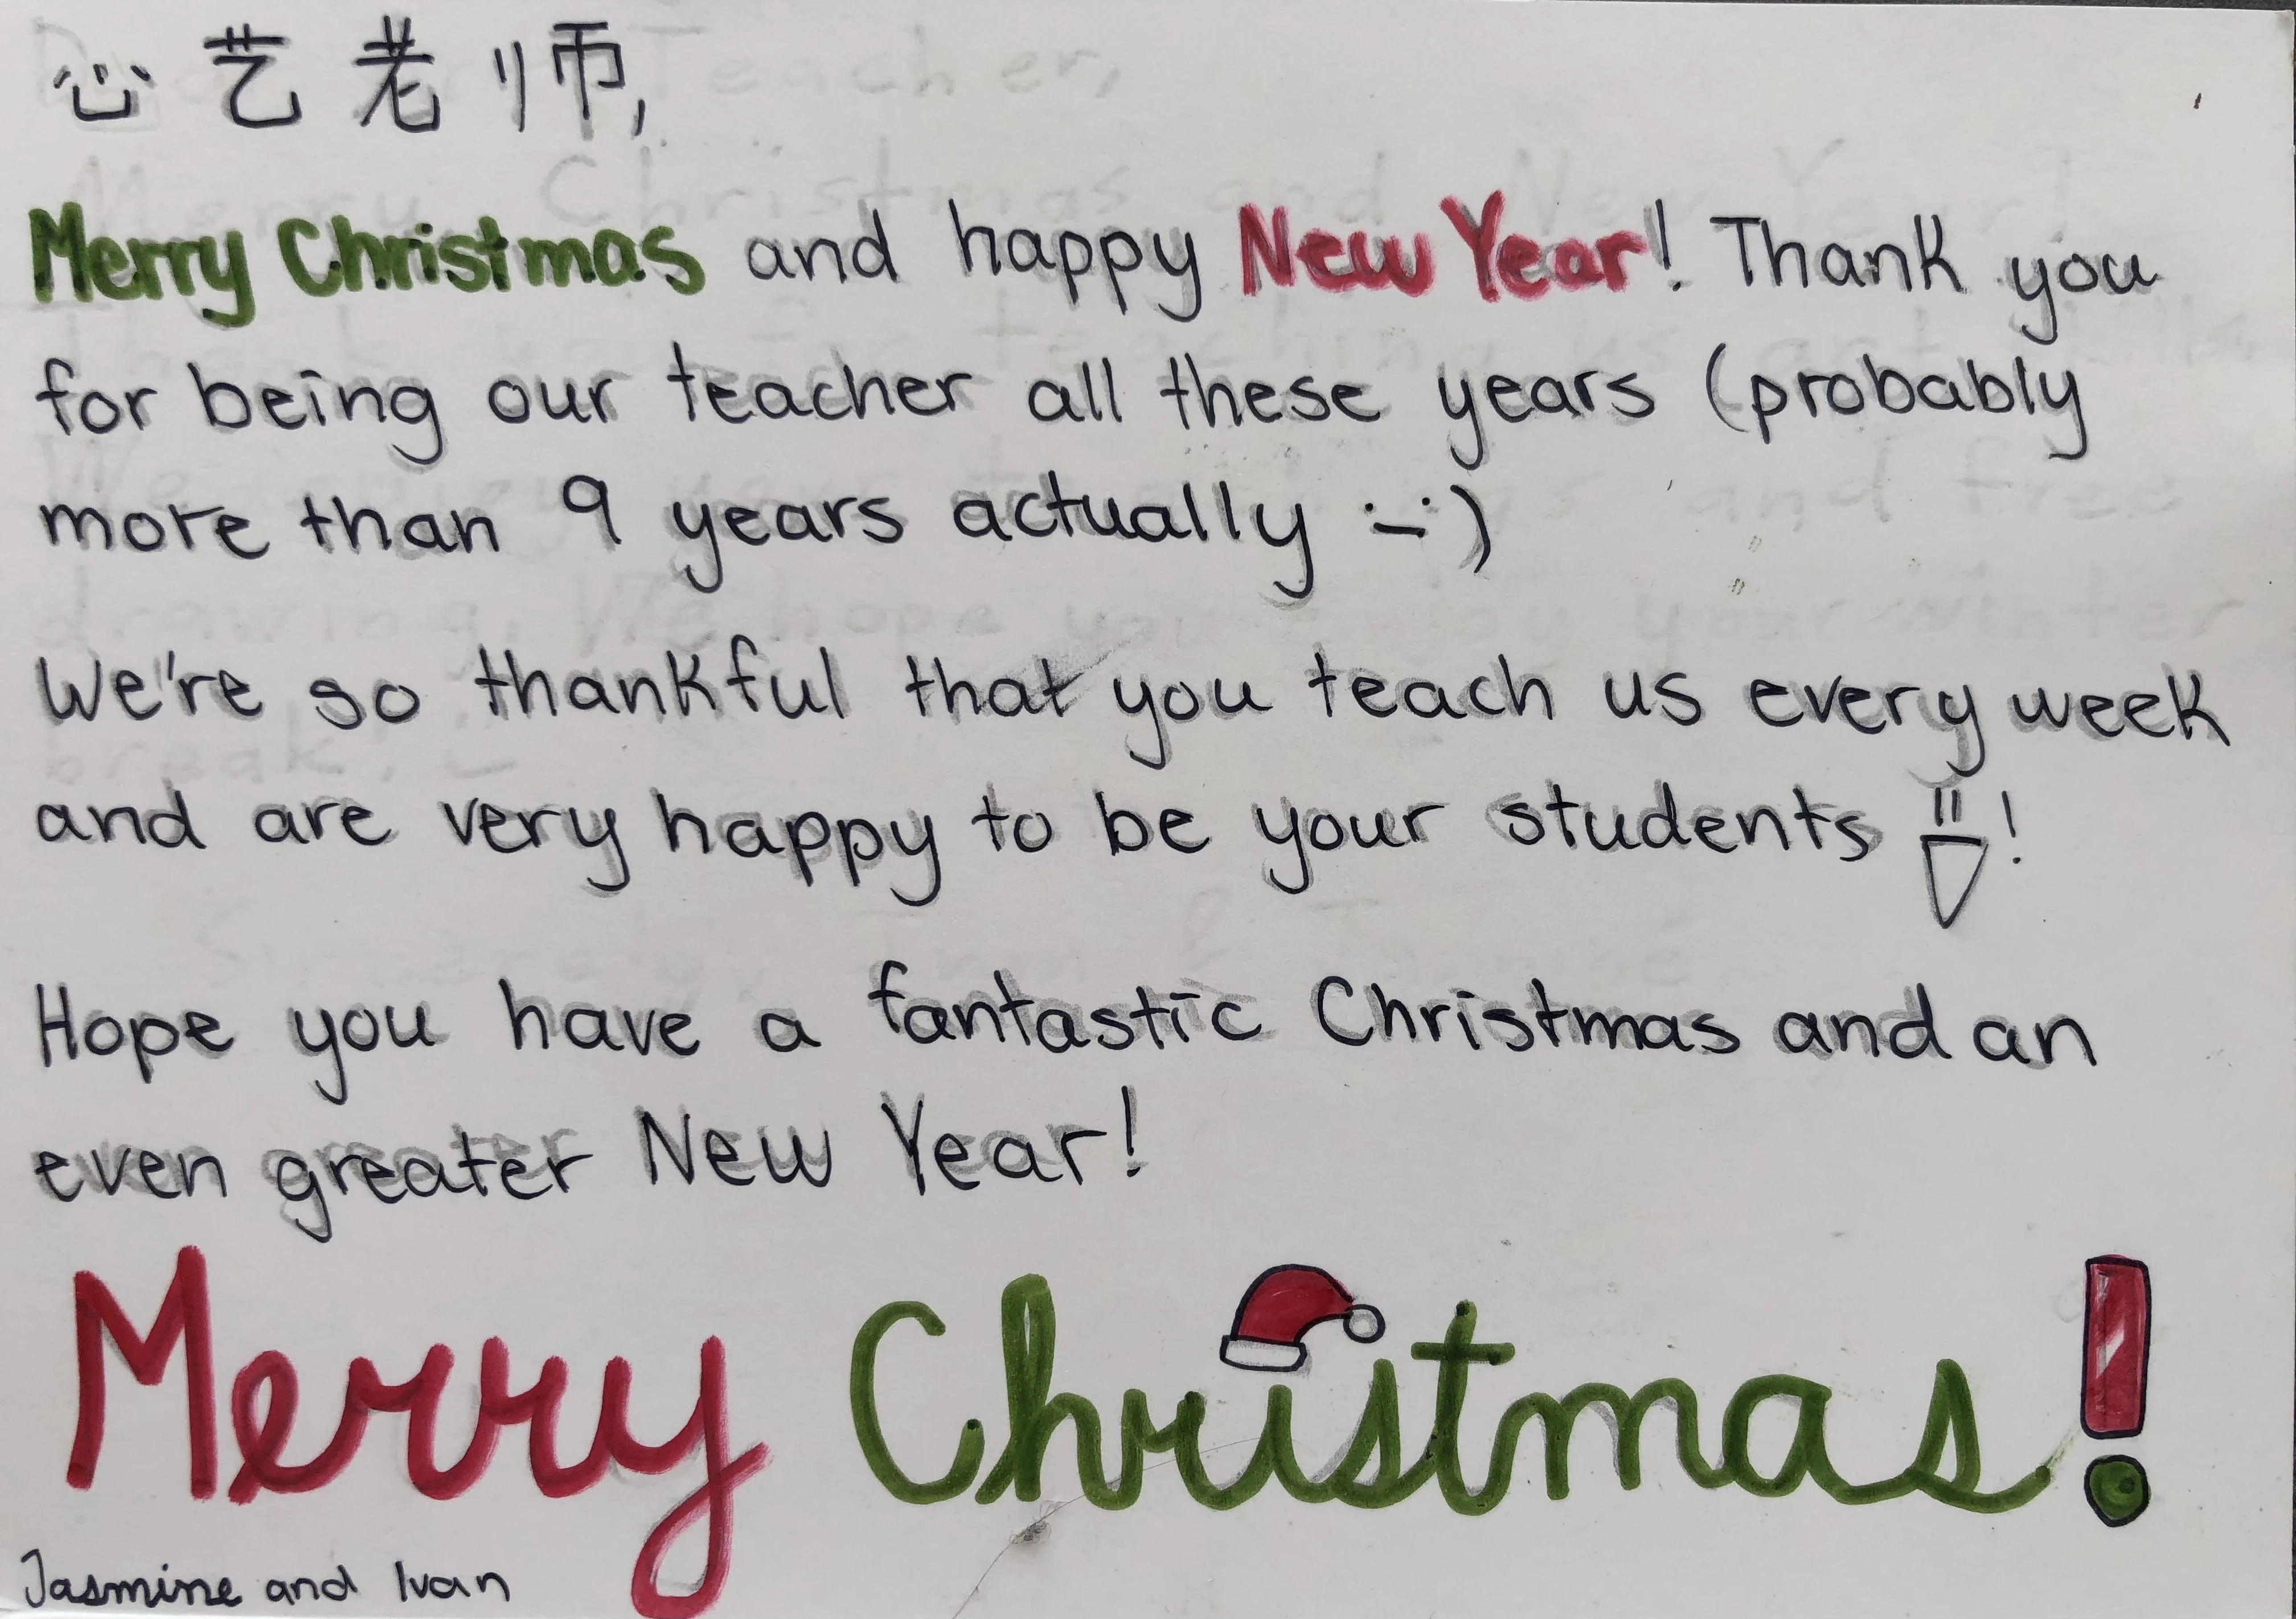 心艺老师,
Merry Christmas and happy New Year! Thank you
for being our teacher all these years (probably
more than 9 years actually :-:)
We're so thankful that you teach us every week
and are very happy to be your students !
Hope you have a fantastic Christmas and an
even greater New Year!
Merry Christmas!
Jasmine and Ivan